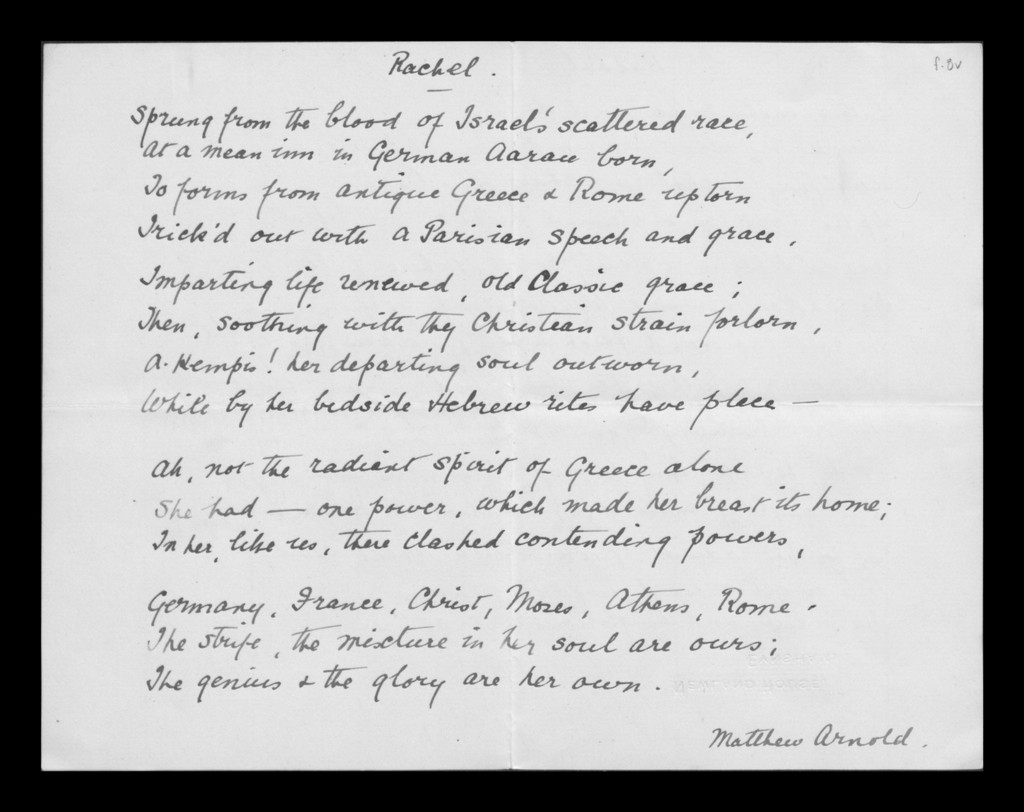 Rachel.
f.8v
Sprung from the blood of Israel's scattered race,
At a mean inn in German Aarau born,
To forms from antique Greece & Rome uptorn
Trick'd out with a Parisian speech and grace,
Imparting life renewed, old Classic grace;
Then, soothing with thy Christian strain forlorn,
A-Kempis! her departing soul outworn,
While by her bedside Hebrew rites have place —
Ah, not the radiant spirit of Greece alone
She had — one power, which made her breast its home;
In her, like us, there clashed contending powers,
Germany, France, Christ, Moses, Athens, Rome.
The strife, the mixture in her soul are ours;
The genius & the glory are her own.
NEWLAND HOUSE
Matthew Arnold.